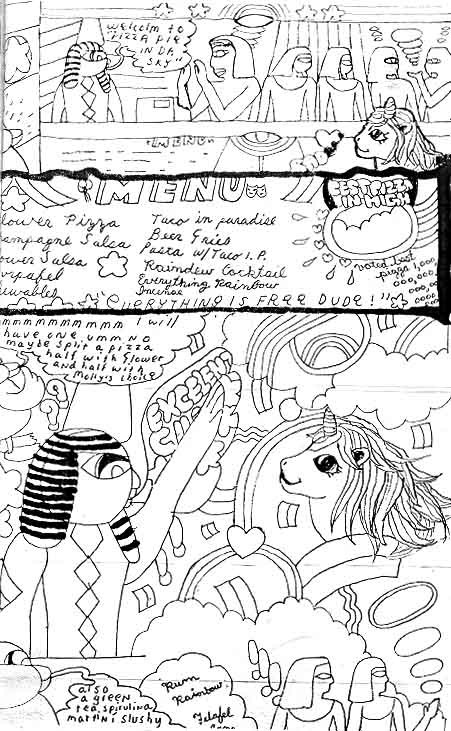 Welcom to
Pizza Pie
IN DA
SKY"
"MENU"
"MENU
BEST PIZZA
IN MICH
Flower Pizza
ampagne Salsa
ower Salsa
Taco in paradise
Beer Fries
Pasta w/ Taco I.P.
Raindew Cocktail
Everything Rainbow
Incense
voted best
pizza 1,000,
000,000,
000,00
0000
"EVERYTHING IS FREE DUDE!"
mmmmmmmmmm I will
have one umm no
maybe split a pizza
half with flower
and half with
Molly's choice
EXCELENT
also
a green
tea spirulina
martini slushy
Rum
Rainbow